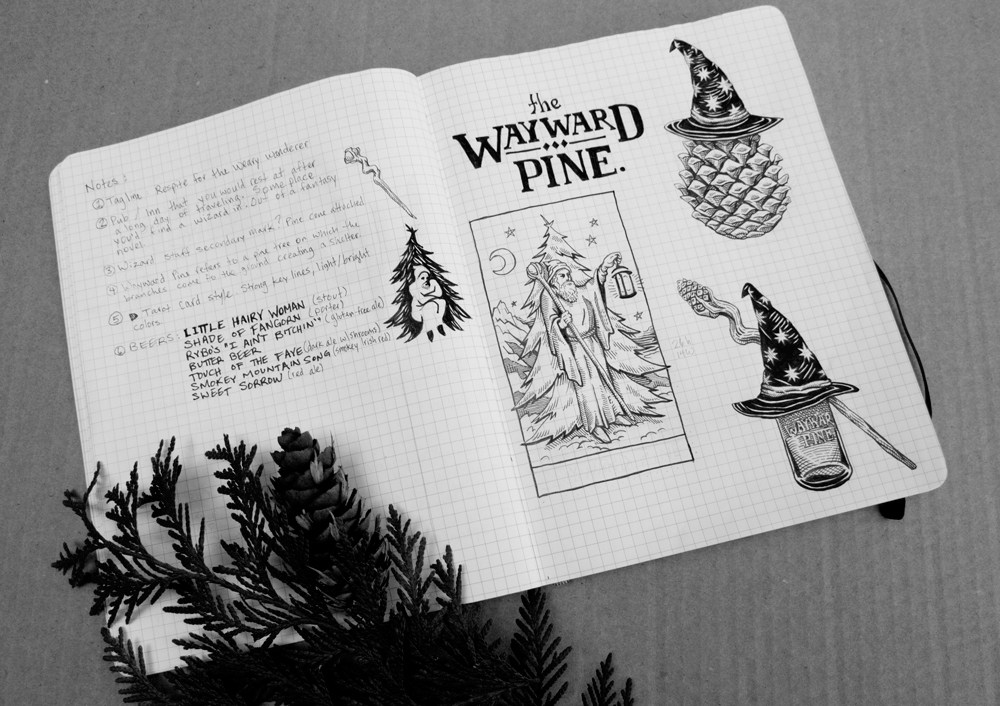 Notes:
① Tagline Respite for the Weary Wanderer
② Pub / Inn that you would rest at after
a long day of traveling. Some place
you'd find a wizard in. Out of a fantasy
novel.
③ Wizard staff secondary mark? Pine cone attached
④ Wayward Pine refers to a pine tree on which the
branches come to the ground creating a shelter.
⑤ Tarot card style. Strong key lines, light/bright
colors.
⑥ BEERS: LITTLE HAIRY WOMAN (stout)
SHADE OF FANGORN (porter)
RYBO'S "I AIN'T BITCHIN'" (gluten-free ale)
BUTTER BEER
TOUCH OF THE FAYE (dark ale w/shrooms)
SMOKEY MOUNTAIN SONG (smokey irish red)
SWEET SORROW (red ale)
the
WAYWARD
PINE.
WAYWARD
PINE